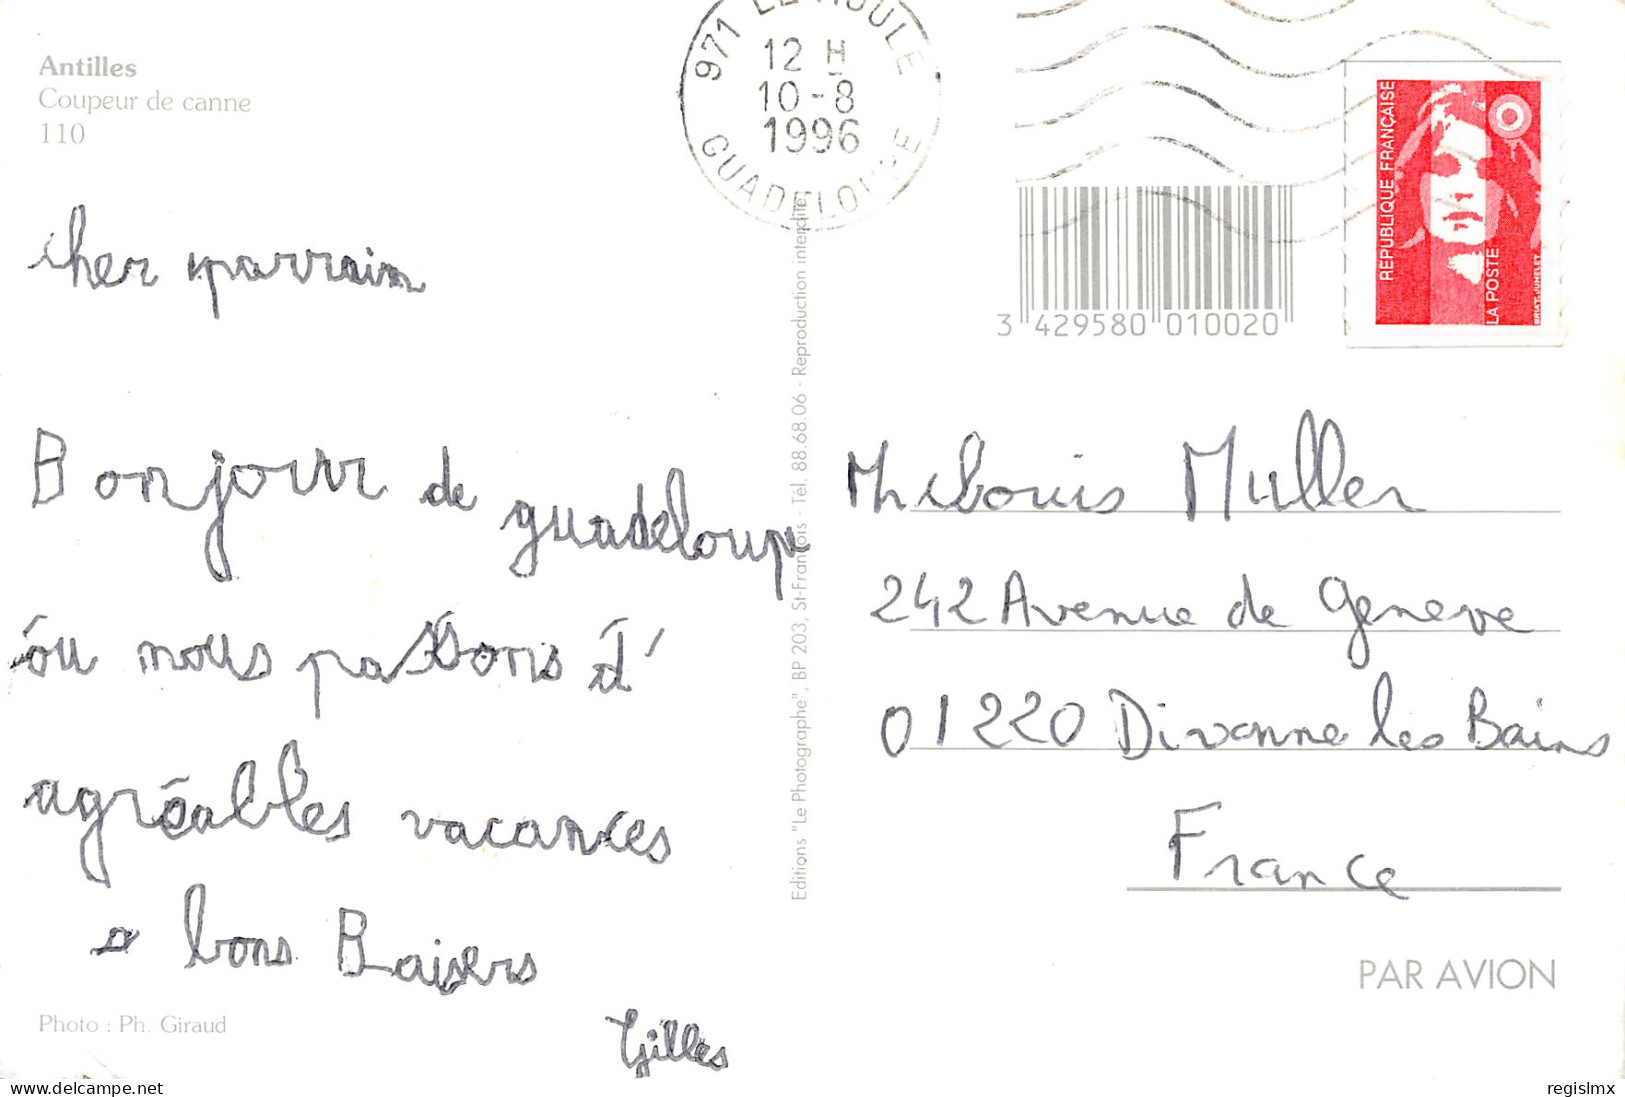 Antilles
Coupeur de canne
110
971 LE MOULE
12 H
10-8
1996
GUADELOUPE
REPUBLIQUE FRANÇAISE
LA POSTE
BRIAT-JUMELET
3 429580 010020
cher parrain
Bonjour de guadeloupe
óu nous passons d'
agréables vacances
bons Baisers
Gilles
Photo : Ph. Giraud
Editions "Le Photographe", BP 203, St-François - Tél. 88.68.06 - Reproduction interdite
Muller
242 Avenue de Geneve
01220 Divonne les Bains
France
PAR AVION
delcampe.net
regislmx